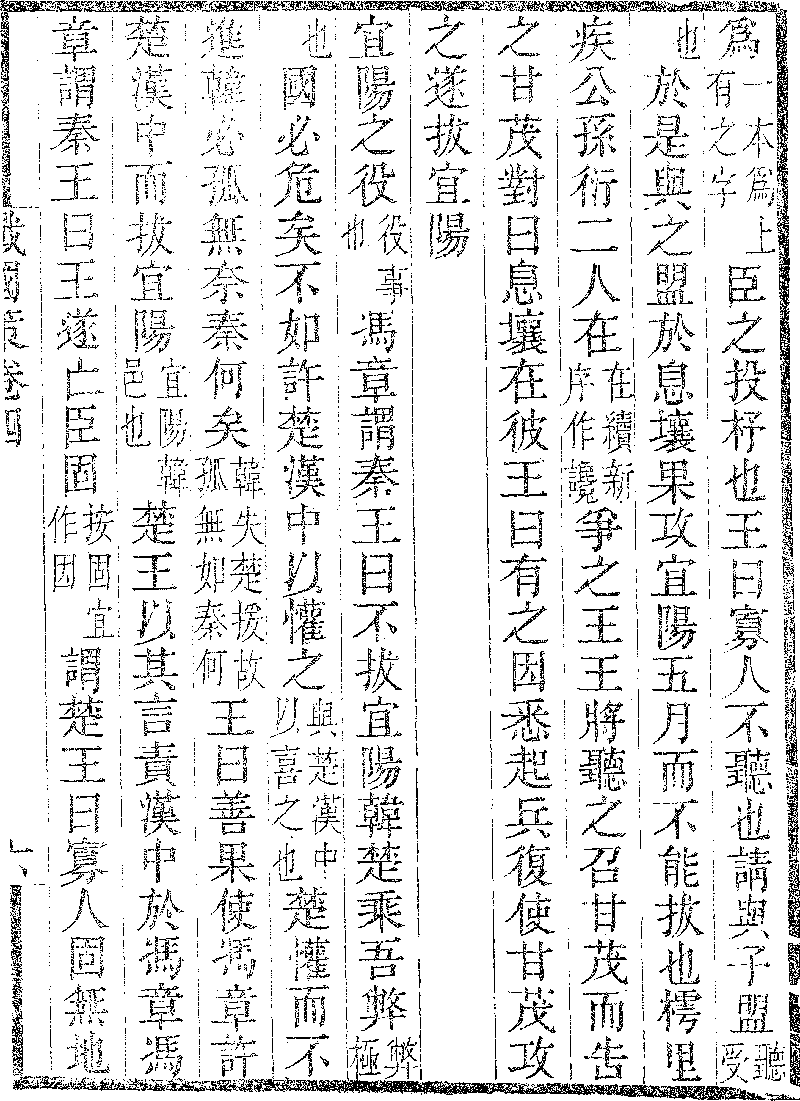 為一本為上有之字臣之投杼也王曰寡人不聽也請與子盟聽受
也於是與之盟於息壤果攻宜陽五月而不能拔也樗里
疾公孫衍二人在在續新序作讒爭之王王將聽之召甘茂而告
之甘茂對曰息壤在彼王曰有之因悉起兵復使甘茂攻
之遂拔宜陽
宜陽之役役事也馮章謂秦王曰不拔宜陽韓楚乘吾弊弊極
也國必危矣不如許楚漢中以懽之與楚漢中以喜之也楚懽而不
進韓必孤無奈秦何矣韓失楚援故孤無如秦何王曰善果使馮章許
楚漢中而拔宜陽宜陽韓邑也楚王以其言責漢中於馮章馮
章謂秦王曰王遂亡臣固按固宜作因謂楚王曰寡人固無地
戰國策卷四